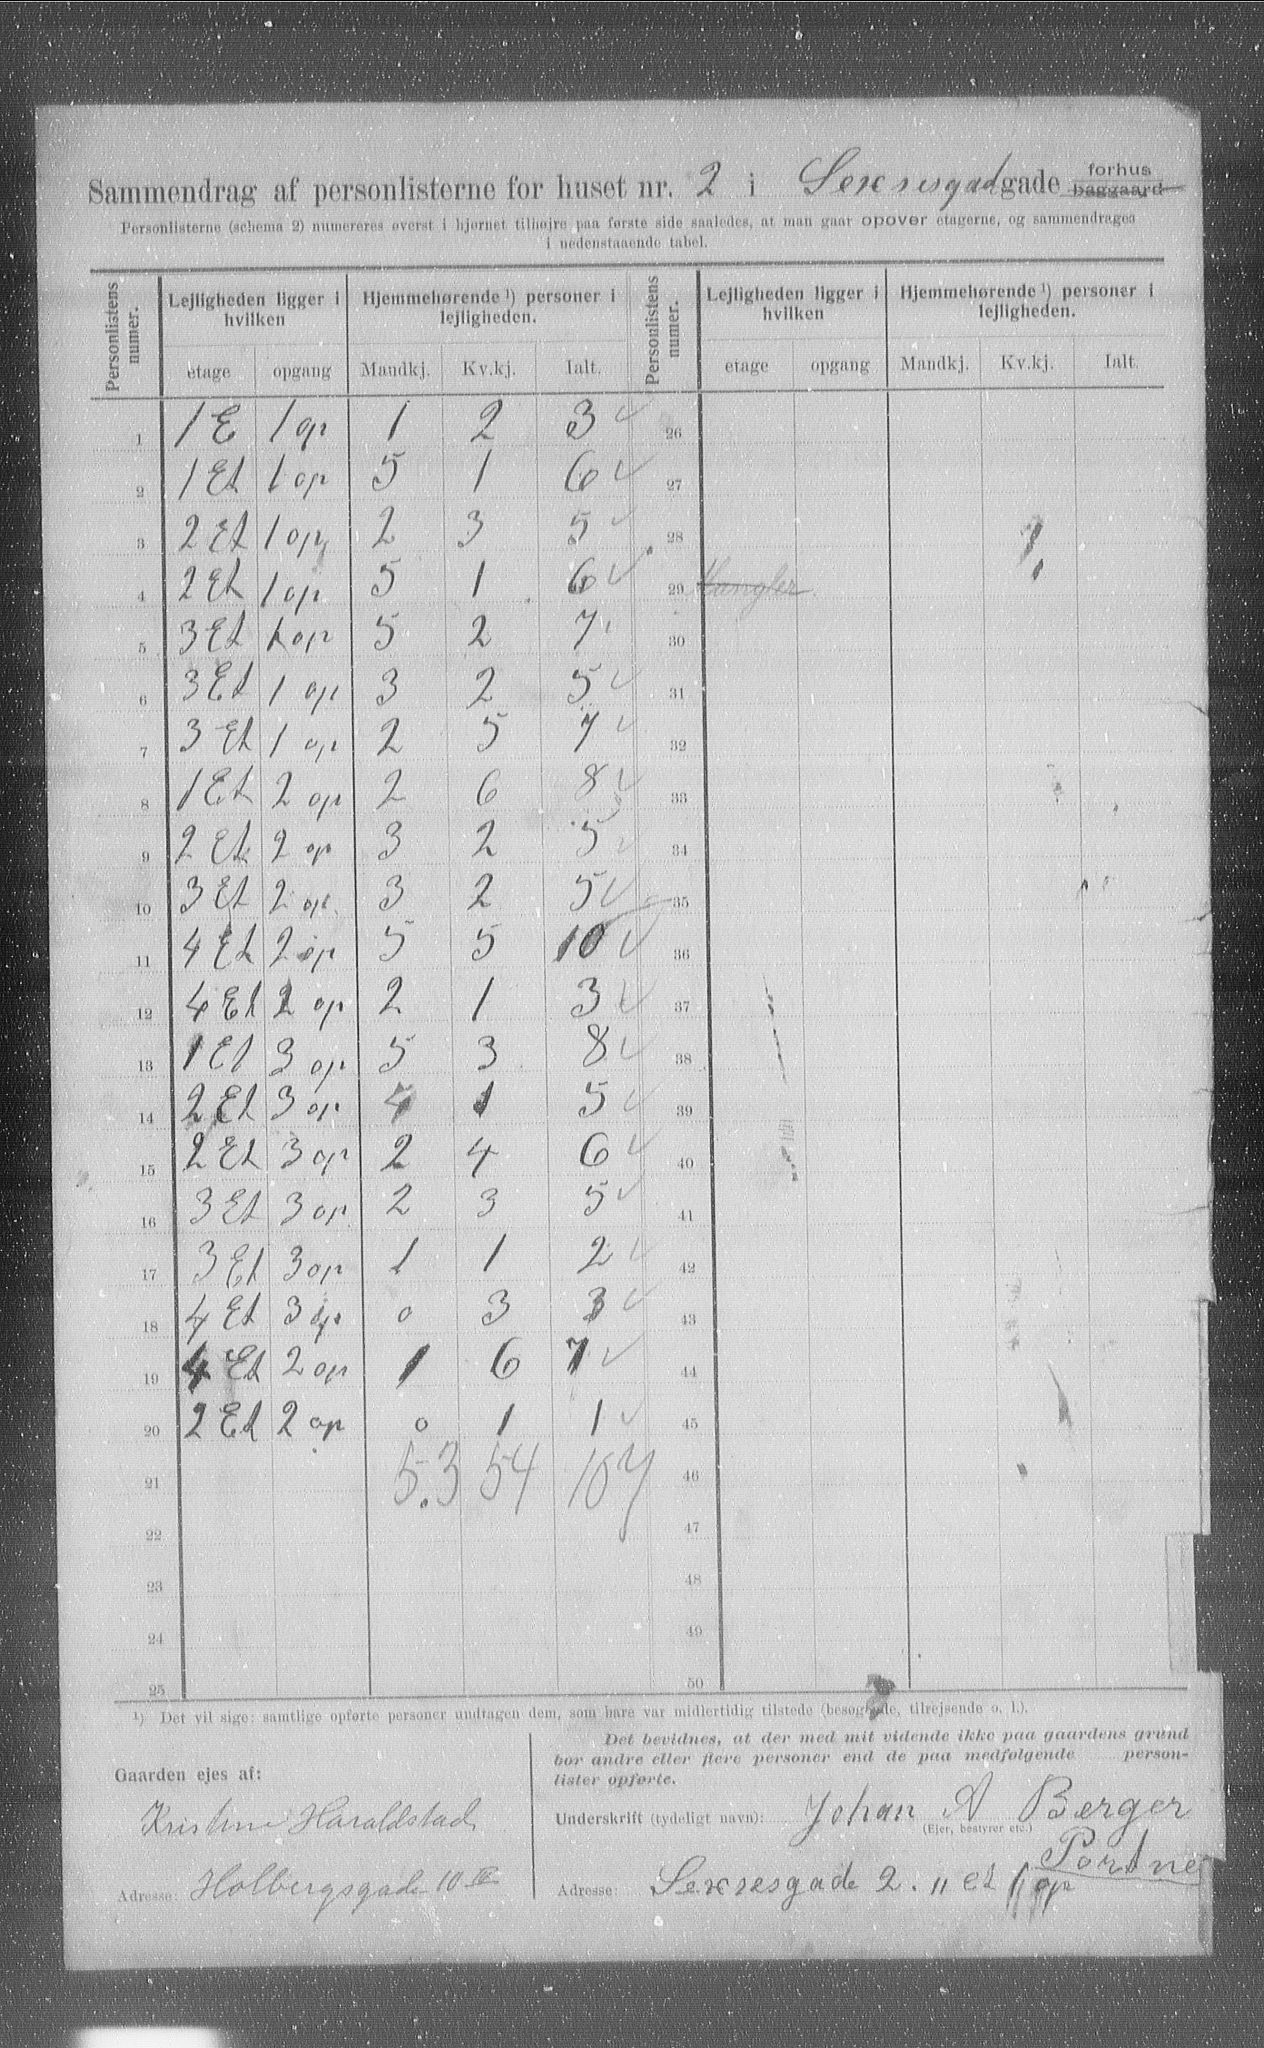 Sammendrag af personlisterne for huset nr. 2 i Sexesgadgade forhus baggaard
Personlisterne (schema 2) numereres øverst i hjørnet tilhøjre paa første side saaledes, at man gaar opover etagerne, og sammendrages
i nedenstaaende tabel.
Personlistens numer. Lejligheden ligger i hvilken Hjemmehørende ¹) personer i lejligheden. Personlistens numer. Lejligheden ligger i hvilken Hjemmehørende ¹) personer i lejligheden.
etage opgang Mandkj. Kv.kj. Ialt. etage opgang Mandkj. Kv.kj. Ialt.
1 1 E 1 op 1 2 3 26
2 1 Et 1 op 5 1 6 27
3 2 Et 1 op 2 3 5 28
4 2 Et 1 op 5 1 6 29 Mangler
5 3 Et 1 op 5 2 7 30
6 3 Et 1 op 3 2 5 31
7 3 Et 1 op 2 5 7 32
8 1 Et 2 op 2 6 8 33
9 2 Et 2 op 3 2 5 34
10 3 Et 2 op 3 2 5 35
11 4 Et 2 op 5 5 10 36
12 4 Et 2 op 2 1 3 37
13 1 Et 3 op 5 3 8 38
14 2 Et 3 op 4 1 5 39
15 2 Et 3 op 2 4 6 40
16 3 Et 3 op 2 3 5 41
17 3 Et 3 op 1 1 2 42
18 4 Et 3 op 0 3 3 43
19 4 Et 2 op 1 6 7 44
20 2 Et 2 op 0 1 1 45
21 53 54 107 46
22 47
23 48
24 49
25 50
¹) Det vil sige: samtlige opførte personer undtagen dem, som bare var midlertidig tilstede (besøgende, tilrejsende o. l.).
Gaarden ejes af:
Kristine Haraldstad
Adresse: Holbergsgade 10 III
Det bevidnes, at der med mit vidende ikke paa gaardens grund
bor andre eller flere personer end de paa medfølgende person-
lister opførte.
Underskrift (tydeligt navn): Johan A Berger
(Ejer, bestyrer etc.)
Portne
Adresse: Sexesgade 2. " et 1 op